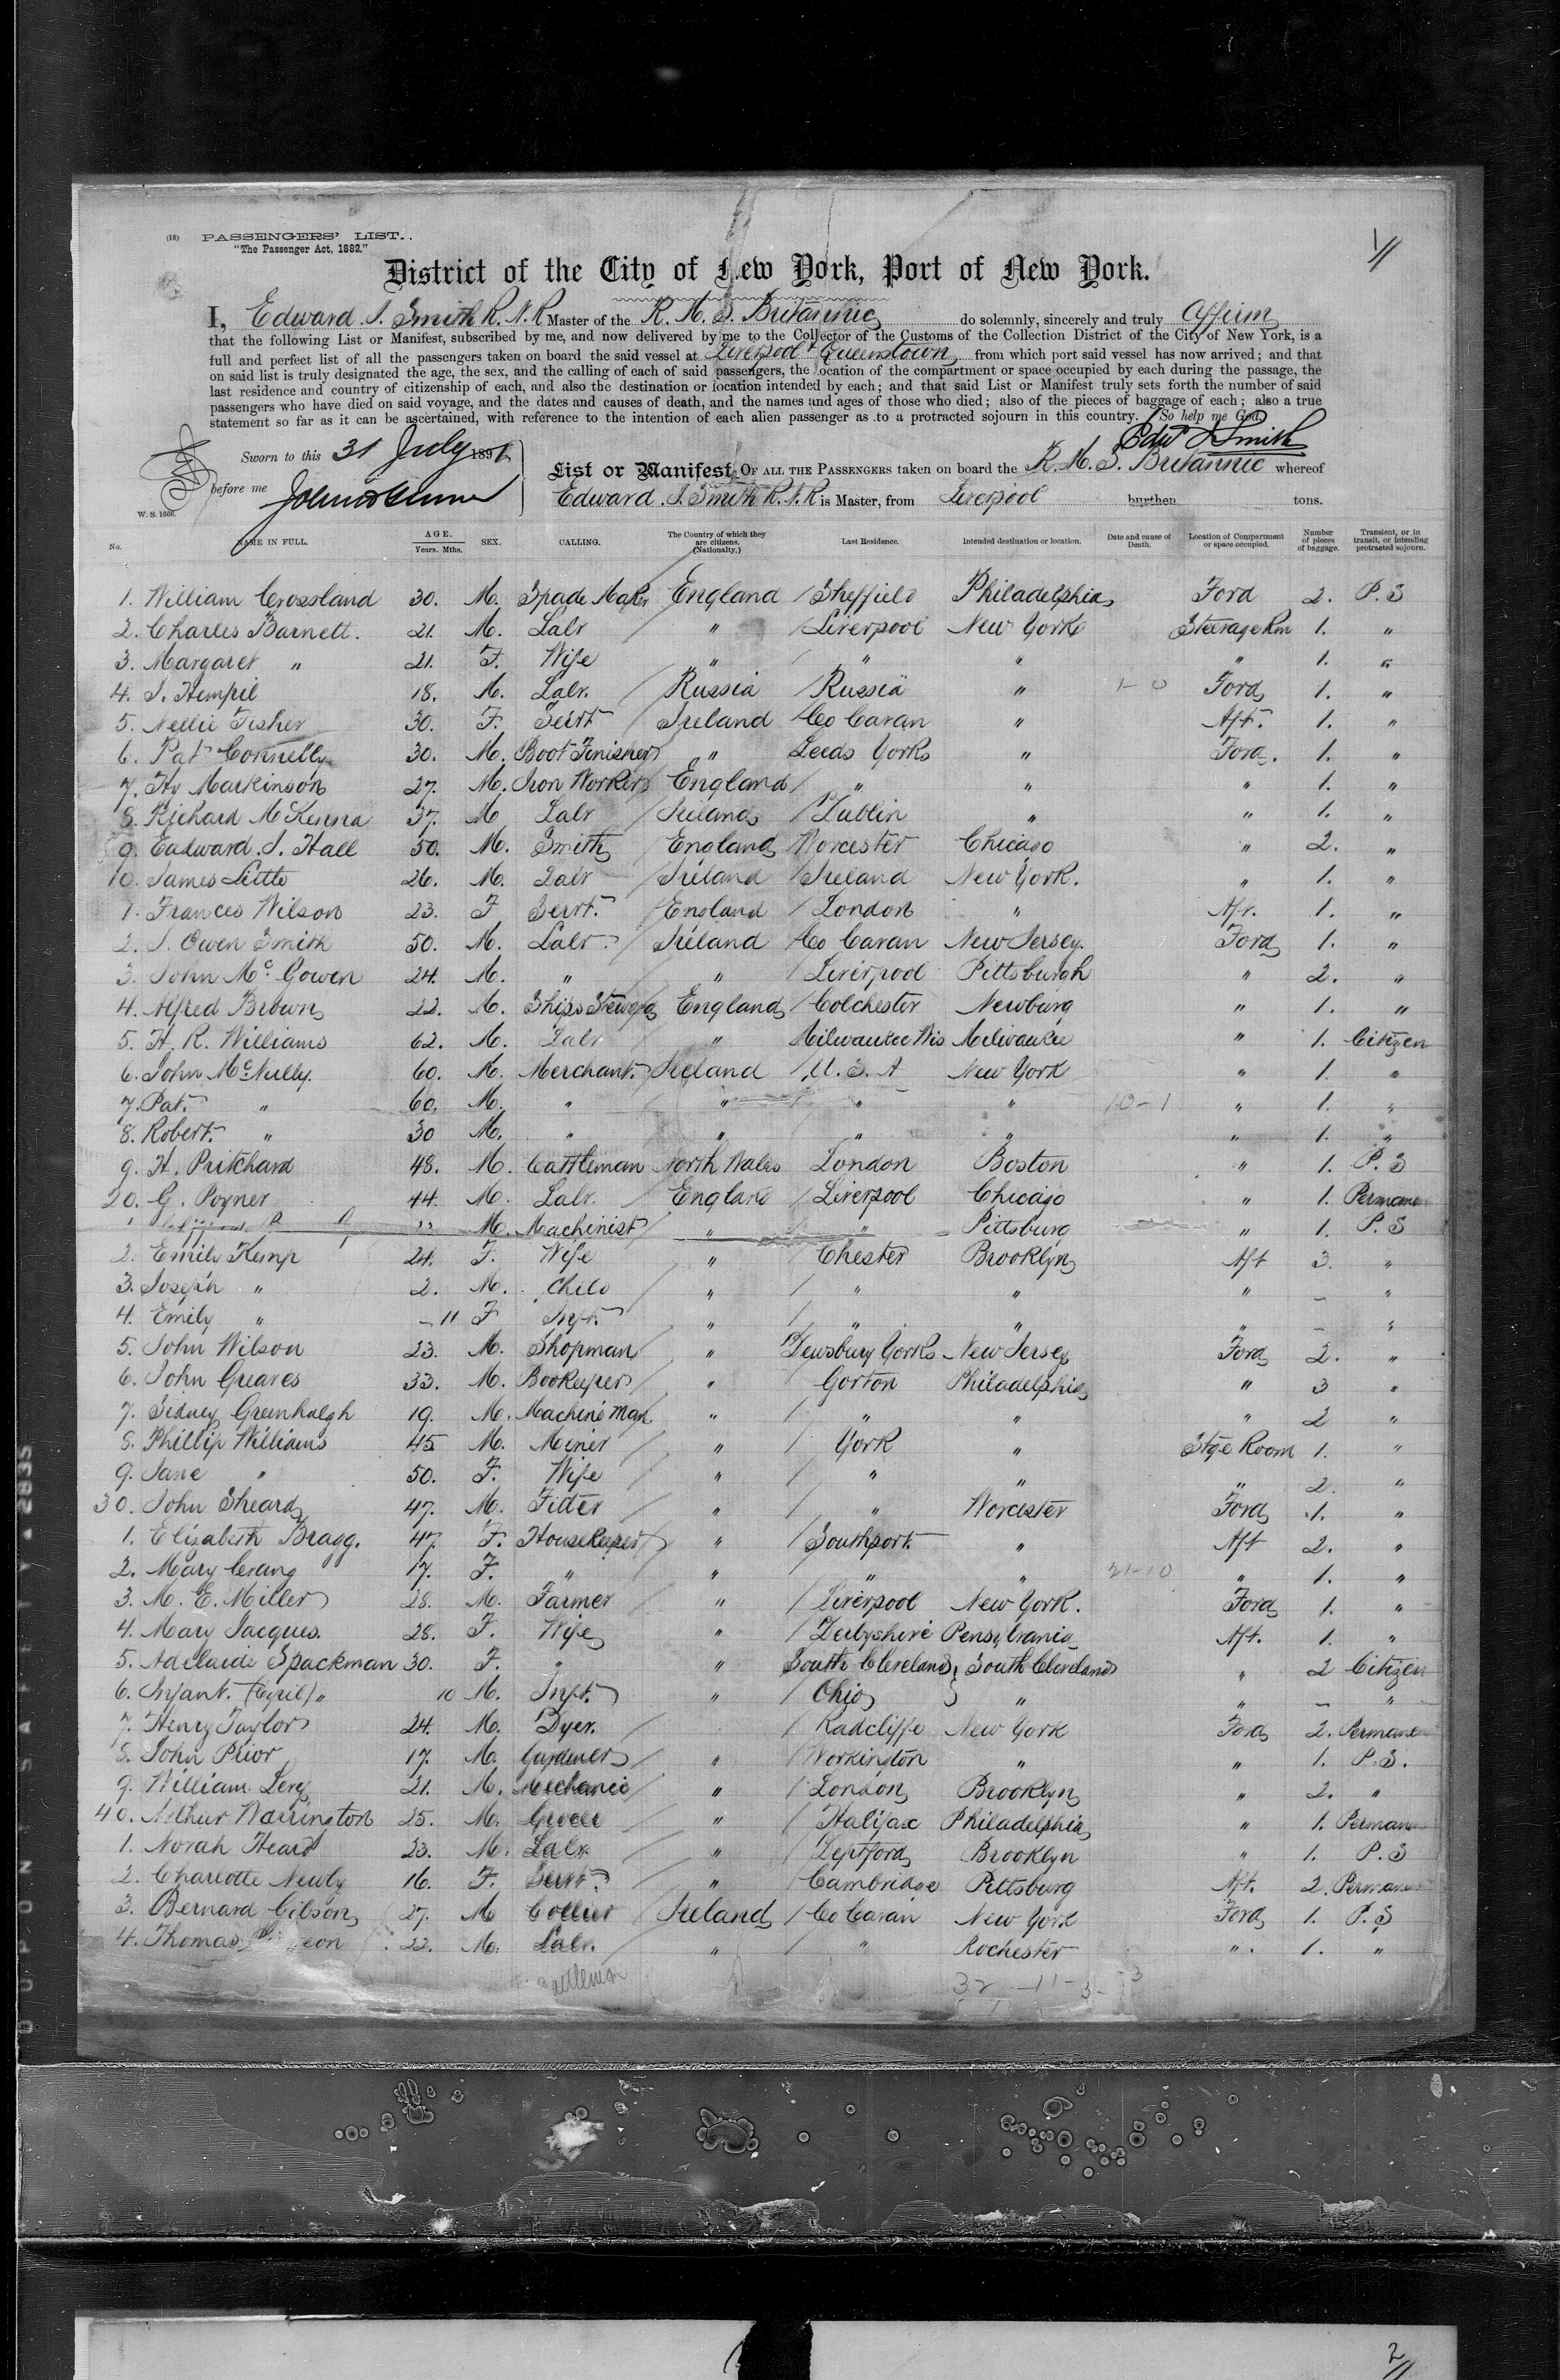 (18) PASSENGERS' LIST.
"The Passenger Act, 1882."
1/
District of the City of New York, Port of New York.
I, Edward J. Smith R.N.R Master of the R.M.S. Britannic do solemnly, sincerely and truly Affirm
that the following List or Manifest, subscribed by me, and now delivered by me to the Collector of the Customs of the Collection District of the City of New York, is a
full and perfect list of all the passengers taken on board the said vessel at Liverpool & Queenstown from which port said vessel has now arrived; and that
on said list is truly designated the age, the sex, and the calling of each of said passengers, the location of the compartment or space occupied by each during the passage, the
last residence and country of citizenship of each, and also the destination or location intended by each; and that said List or Manifest truly sets forth the number of said
passengers who have died on said voyage, and the dates and causes of death, and the names and ages of those who died; also of the pieces of baggage of each; also a true
statement so far as it can be ascertained, with reference to the intention of each alien passenger as to a protracted sojourn in this country. So help me God.
Edwd J Smith
Sworn to this 31 July 1891
before me
List or Manifest OF ALL THE PASSENGERS taken on board the R.M.S. Britannic whereof
Edward J. Smith R.N.R is Master, from Liverpool burthen tons.
W. S. 1066.
No. NAME IN FULL. AGE. Years. Mths. SEX. CALLING. The Country of which they are citizens. (Nationality.) Last Residence. Intended destination or location. Date and cause of Death. Location of Compartment or space occupied. Number of pieces of baggage. Transient, or in transit, or intending protracted sojourn.
1. William Crossland 30. M. Spade Maker England Sheffield Philadelphia Ford 2. P.S
2. Charles Barnett. 21. M. Labr " Liverpool New York Steerage Rm 1. "
3. Margaret " 21. F. Wife " " " " 1. "
4. J. Hempil 18. M. Labr. Russia Russia " 1-0 Ford 1. "
5. Nellie Fisher 30. F. Servt Ireland Co Cavan " Aft. 1. "
6. Pat Connelly 30. M. Boot Finisher " Leeds Yorks " Ford. 1. "
7. Hy Markinson 27. M. Iron Worker England " " " 1. "
8. Richard McKenna 37. M Labr Ireland Dublin " " 1. "
9. Eadward J. Hall 50. M. Smith England Worcester Chicago " 2. "
10. James Little 26. M. Labr Ireland Ireland New York. " 1. "
1. Frances Wilson 23. F Servt. England London " Aft. 1. "
2. J. Owen Smith 50. M. Labr. Ireland Co Cavan New Jersey. Ford 1. "
3. John Mc Gowen 24. M. " " Liverpool Pittsburgh " 2. "
4. Alfred Brown 22. M. Ships Steward England Colchester Newburg " 1. "
5. H. R. Williams 62. M. Labr " Milwaukee Wis Milwaukee " 1. Citizen
6. John McNully. 60. M. Merchant. Ireland U.S.A New York " 1. "
7. Pat. " 60. M. " " " " 10-1 " 1. "
8. Robert. " 30 M. " " " " " 1. "
9. H. Pritchard 48. M. Cattleman North Wales London Boston " 1. P.S
20. G. Poyner 44. M. Labr. England Liverpool Chicago " 1. Permanen
1 22 M. Machinist " " Pittsburg " 1. P.S
2. Emily Kemp 24. F. Wife " Chester Brooklyn Aft 3. "
3. Joseph " 2. M. Child " " " " - "
4. Emily " - 11 F Inft. " " " " - "
5. John Wilson 23. M. Shopman " Dewsbury Yorks New Jersey Ford 2. "
6. John Greaves 33. M. Bookeeper " Gorton Philadelphia " 3 "
7. Sidney Greenhalgh 19. M. Machine Man " " " " 2 "
8. Phillip Williams 45 M. Miner " York " Stge Room 1. "
9. Jane " 50. F. Wife " " " " 2. "
30. John Sheard 47. M. Fitter " " Worcester Ford 1. "
1. Elizabeth Bragg. 47. F. Housekeeper " Southport. " Aft 2. "
2. Mary Crang 17. F. " " " " 21-10 " 1. "
3. M. E. Miller 28. M. Farmer " Liverpool New York. Ford 1. "
4. Mary Jacques. 28. F. Wife " Derbyshire Pensylvania Aft. 1. "
5. Adelaide Spackman 30. F. " " South Cleveland South Cleveland " 2 Citizen
6. Infant. (Cyril) " 10 M. Inft. " Ohio " " - "
7. Henry Taylor 24. M. Dyer. Radcliffe New York Ford 2. Permanen
8. John Prior 17. M. Gardener " Workington " " 1. P.S.
9. William Levy 21. M. Mechanic " London Brooklyn " 2. "
40. Arthur Warrington 25. M. Grocer " Halifax Philadelphia " 1. Permanen
1. Norah Heard 23. M. Labr. " Deptford Brooklyn " 1. P.S
2. Charlotte Newby 16. F. Servt. " Cambridge Pittsburg Aft. 2. Permanen
3. Bernard Gibson 27. M Collier Ireland Co Cavan New York Ford 1. P.S
4. Thomas 22. M. Labr. " " Rochester " 1. "
Cattleman 32 - 11 - 3 - 3
DUPONT SAFETY 2835
2/